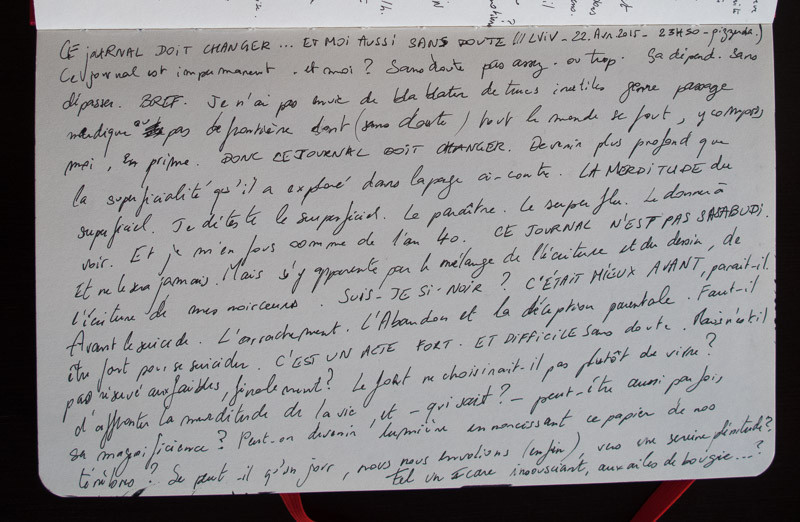 CE JOURNAL DOIT CHANGER... ET MOI AUSSI SANS DOUTE (LVIV - 22. Avr. 2015 - 23H50 - pizzeria.)
Ce journal est impermanent. et moi ? Sans doute pas assez. ou trop. Sa dépend. Sans
dépasser. BREF. Je n'ai pas envie de blablater de trucs inutiles genre passage
merdique au pas de frontière dont (sans doute) tout le monde se fout, y compris
moi, en prime. DONC CE JOURNAL DOIT CHANGER. Devenir plus profond que
la superficialité qu'il a exploré dans la page ci-contre. LA MERDITUDE du
superficiel. Je déteste le superficiel. Le paraître. Le superflu. Le donner à
voir. Et je m'en fous comme de l'an 40. CE JOURNAL N'EST PAS SASABUDI.
Et ne le sera jamais. Mais s'y apparente par le mélange de l'écriture et du dessin, de
l'écriture de mes noirceurs. SUIS-JE SI-NOIR ? C'ÉTAIT MIEUX AVANT, parait-il.
Avant le suicide. L'arrachement. L'Abandon et la déception parentale. Faut-il
être fort pour se suicider. C'EST UN ACTE FORT. ET DIFFICILE sans doute. Mais n'est-il
pas réservé aux faibles, finalement ? Le fort ne choisirait-il pas plutôt de vivre ?
d'affronter la merditude de la vie, et - qui sait ? - peut-être aussi parfois,
sa magnificience ? Peut-on devenir lumière en noircissant ce papier de nos
ténèbres ? Se peut-il qu'un jour, nous nous envolions (enfin), vers une sereine plénitude ?
Tel un Icare insousciant, aux ailes de bougie...?